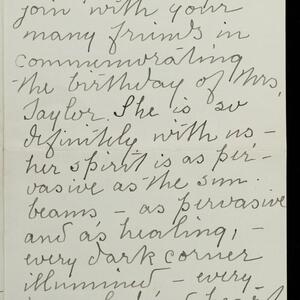 join with your
many friends in
commemorating
the birthday of Mrs,
Taylor. She is so
definitely with us –
her spirit is as per-
vasive as the sun
beams – as pervasive
and as healing, –
every dark corner
illumined – every-